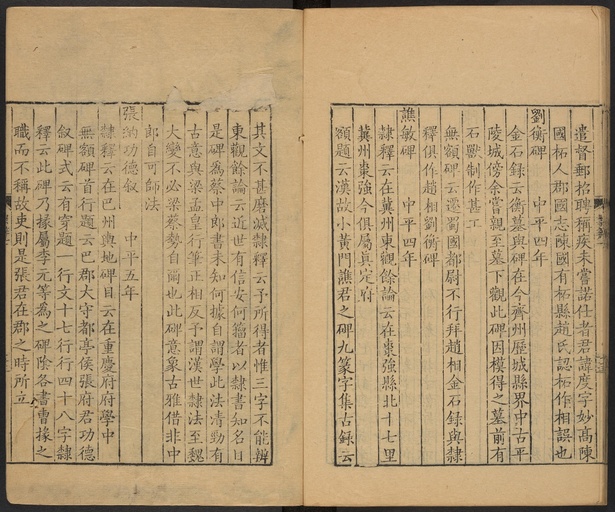 遣督郵招聘稱疾未嘗諾仕者君諱度字妙高陳
國柘人郡國志陳國有柘縣趙氏認柘作相誤也
劉衡碑　中平四年
金石錄云衡墓與碑在今齊州歷城縣界中古平
陵城傍余嘗親至墓下觀此碑因模得之墓前有
石獸制作甚工
無額碑云遷蜀國都尉不行拜趙相金石錄與隸
釋俱作趙相劉衡碑
譙敏碑　中平四年
隸釋云在冀州東觀餘論云在棗強縣北十七里
冀州棗強今俱屬真定府
額題云漢故小黃門譙君之碑九篆字集古錄云
其文不甚磨滅隸釋云予所得者惟三字不能辨
東觀餘論云近世有信安何籀者以隸書知名曰
是碑為蔡中郎書未知何據自謂學此法清勁有
古意與梁孟皇行筆正相反予謂漢世隸法至魏
大變不必梁蔡勢自爾也此碑意象古雅借非中
郎自可師法
張納功德敘　中平五年
隸釋云在巴州輿地碑目云在重慶府府學中
無額碑首行題云巴郡大守都亭侯張府君功德
叙碑式云有穿題一行文十七行行四十八字隸
釋云此碑乃掾屬李元等為之碑陰各書曹掾之
職而不稱故吏則是張君在郡之時所立